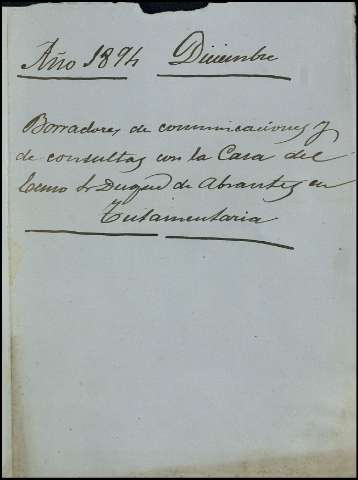 Año 1894 Diciembre
Borradores de comunicaciones y
de consultas con la Casa del
Excmo Sr Duque de Abrantes en
Testamentaria